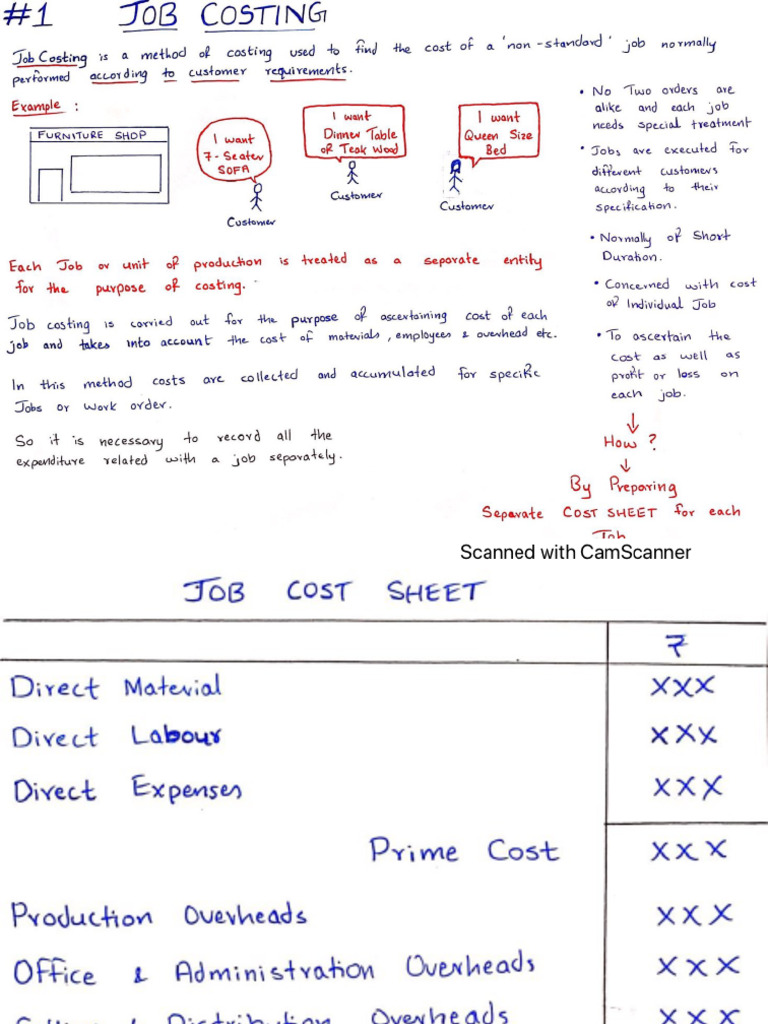 #1 JOB COSTING
Job Costing is a method of costing used to find the cost of a 'non-standard' job normally
performed according to customer requirements.
Example :
FURNITURE SHOP
I want
7-Seater
SOFA
Customer
I want
Dinner Table
of Teak Wood
Customer
I want
Queen Size
Bed
Customer
Each Job or unit of production is treated as a separate entity
for the purpose of costing.
Job costing is carried out for the purpose of ascertaining cost of each
job and takes into account the cost of materials, employees & overhead etc.
In this method costs are collected and accumulated for specific
Jobs or work order.
So it is necessary to record all the
expenditure related with a job separately.
• No Two orders are
alike and each job
needs special treatment
• Jobs are executed for
different customers
according to their
specification.
• Normally of Short
Duration.
• Concerned with cost
of Individual Job
• To ascertain the
cost as well as
profit or loss on
each job.
How ?
By Preparing
Separate COST SHEET for each
Job
Scanned with CamScanner
JOB COST SHEET
₹
Direct Material XXX
Direct Labour XXX
Direct Expenses XXX
Prime Cost XXX
Production Overheads XXX
Office & Administration Overheads XXX
Selling & Distribution Overheads XXX